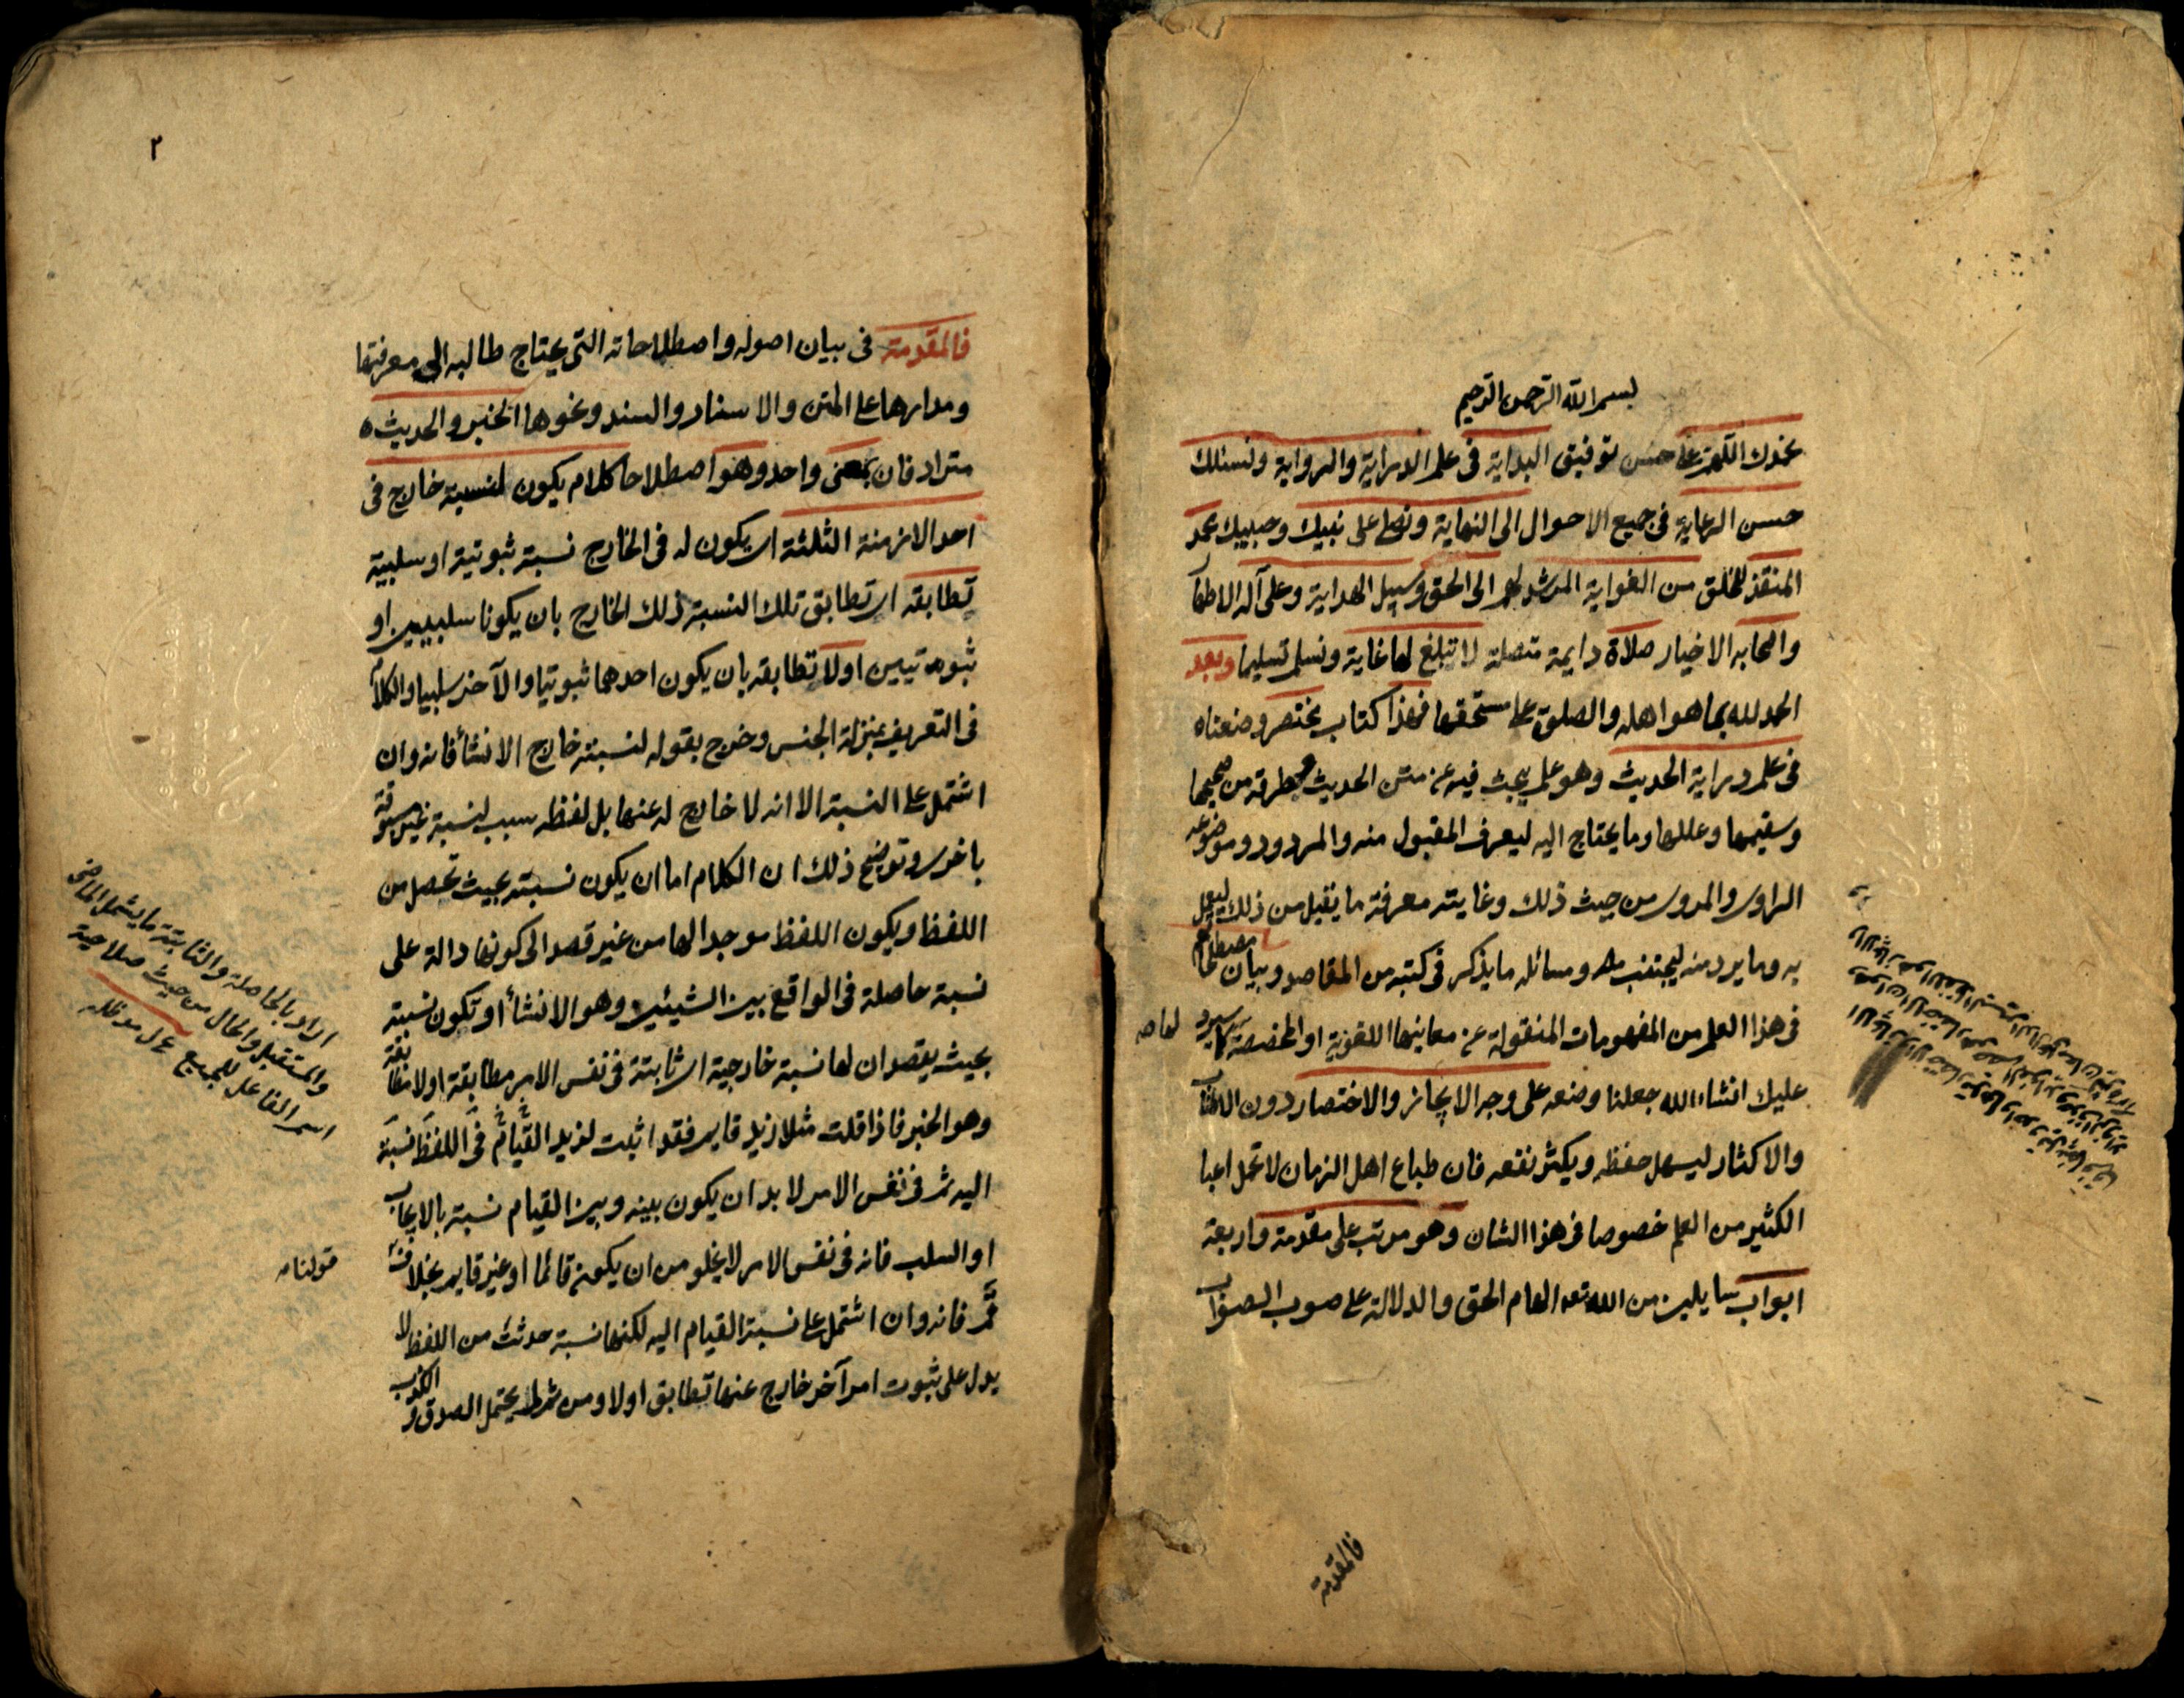 بسم الله الرحمن الرحيم
نحمدك اللهم على حسن توفيق البداية في علم الدراية والرواية ونسئلك
حسن الرعاية في جميع الاحوال الى النهاية ونصلى على نبيك وحبيبك محمد
المنقذ للخلق من الغواية المرشد لهم الى الحق وسبيل الهداية وعلى آله الاطهار
واصحابه الاخيار صلاة دايمة متصلة لا تبلغ لها غاية ونسلم تسليما وبعد
الحمد لله بما هو اهله والصلوة على مستحقها فهذا كتاب مختصر وضعناه
في علم دراية الحديث وهو علم يبحث فيه عن متن الحديث وطرقه من صحيحها
وسقيمها وعللها وما يحتاج اليه ليعرف المقبول منه والمردود وموضوعه
الراوى والمروى من حيث ذلك وغايته معرفة ما يقبل من ذلك ليعمل
به وما يرد منه ليجتنب ومسائله ما يذكر في كتبه من المقاصد وبيان مصطلحاتهم
في هذا العلم من المفهومات المنقولة عن معانيها اللغوية او المخصصة لها كما سيرد
عليك انشاء الله جعلنا وضعه على وجه الايجاز والاختصار دون الاطناب
والاكثار ليسهل حفظه ويكثر نفعه فان طباع اهل الزمان لا تحمل اعبا
الكثير من العلم خصوصا في هذا الشان وهو مرتب على مقدمة واربعة
ابواب سايلين من الله تعه الهام الحق والدلالة على صوب الصواب
فالمقدمة
٢
فالمقدمة في بيان اصوله واصطلاحاته التي يحتاج طالبه الى معرفتها
ومدارها على المتن والاسناد والسند ونحوها الخبر والحديث
مترادفان بمعنى واحد وهو اصطلاحا كلام يكون لنسبته خارج في
احد الازمنة الثلثة اى يكون له في الخارج نسبة ثبوتية او سلبية
تطابقه اى تطابق تلك النسبة ذلك الخارج بان يكونا سلبيين او
ثبوتيين او لا تطابقه بان يكون احدهما ثبوتيا والآخر سلبيا والكلام
في التعريف بمنزلة الجنس وخرج بقوله لنسبته خارج الانشأ فانه وان
اشتمل على النسبة الا انه لا خارج له عنها بل لفظه سبب لنسبة غير مسبوقة
باخرى وتوضيح ذلك ان الكلام اما ان يكون نسبته بحيث تحصل من
اللفظ ويكون اللفظ موجدا لها من غير قصد الى كونها دالة على
نسبة حاصلة في الواقع بين الشيئين وهو الانشأ او تكون نسبته
بحيث يقصد ان لها نسبة خارجية اى ثابتة في نفس الامر مطابقة او لا مطابقة
وهو الخبر فاذا قلت مثلا زيد قايم فقد اثبت لزيد القيام في اللفظ نسبة
اليه ثم في نفس الامر لا بد ان يكون بينه وبين القيام نسبة بالايجاب
او السلب فانه في نفس الامر لا يخلو من ان يكون قائما او غير قايم بخلاف قولنا
قم فانه وان اشتمل على نسبة القيام اليه لكنها نسبة حدثت من اللفظ لا
يدل على ثبوت امر آخر خارج عنها تطابق اولا ومن شرط يحتمل الصدق والكذب
المراد بالحاصلة والثابتة ما يشمل الماضى
والمستقبل والحال من حيث صلاحية
اسم الفاعل للجميع